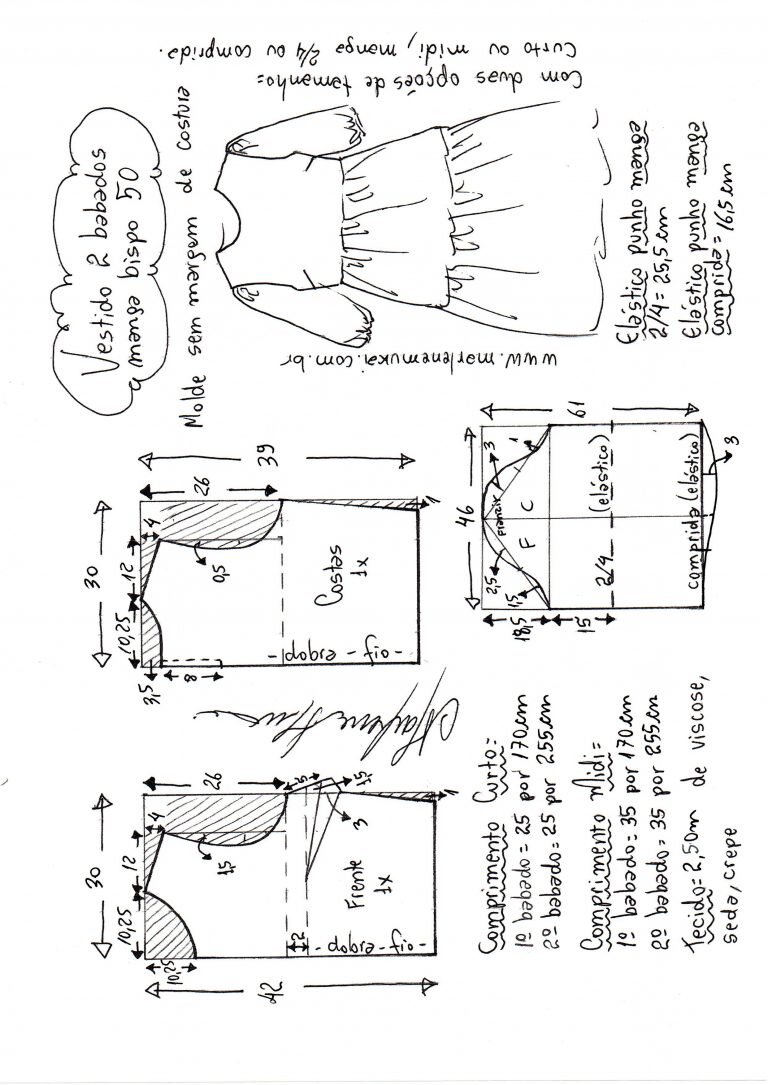 Vestido 2 babados
manga bispo 50
Molde sem margem de costura
Com duas opções de tamanho:
Curto ou midi, manga 2/4 ou comprida.
www.marlenemukai.com.br
Elástico punho manga
2/4 = 25,5 cm
Elástico punho manga
comprida = 16,5 cm
30
10,25
12
4
26
39
3,5
8
0,5
Costas
1x
dobra - fio
1
46
61
Franzir
2,5
3
1,5
1
F
C
18,5
15
2/4
(elástico)
comprida (elástico)
3
Marlene Mukai
30
10,25
12
4
26
42
10,25
1,5
5
1,5
3
2
Frente
1x
dobra - fio
1
Comprimento Curto:
1º babado = 25 por 170cm
2º babado = 25 por 255cm
Comprimento Midi:
1º babado = 35 por 170cm
2º babado = 35 por 255cm
Tecido = 2,50m de viscose,
seda, crepe